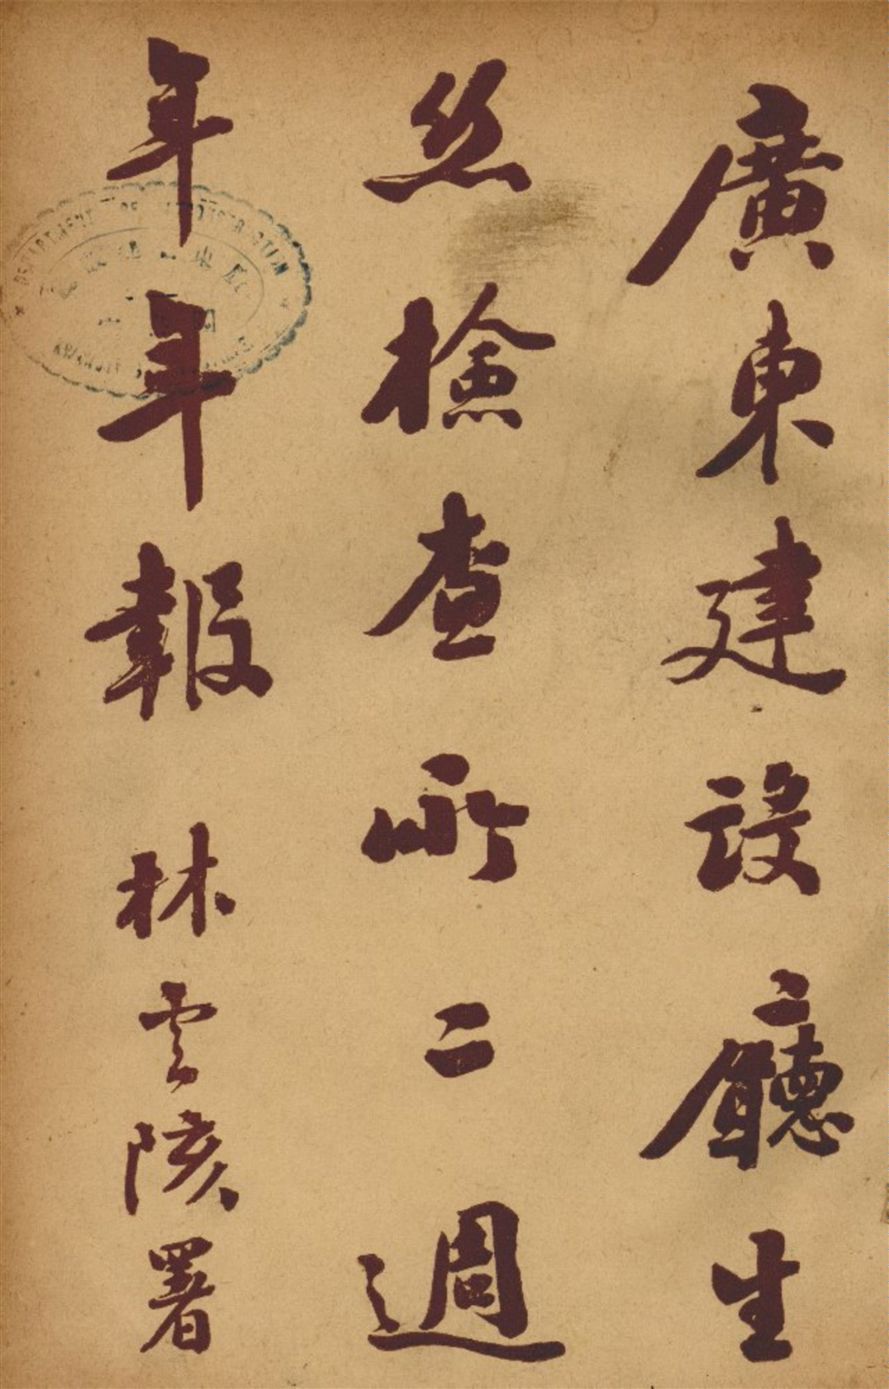 廣東建設廳生
絲檢查所二週
年年報 林雲陔署
DEPARTMENT OF RECONSTRUCTION